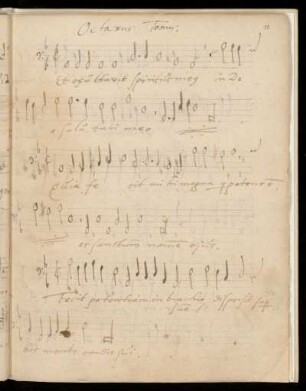 Octavus Toni:
11
Et exultavit spiritus meus in De
o salu tari meo
Quia fe cit mi hi magna q potens e
et sanctum nomen ejus.
Fecit potentiam in brachio dispersit sup
suo
mente cordis sui.